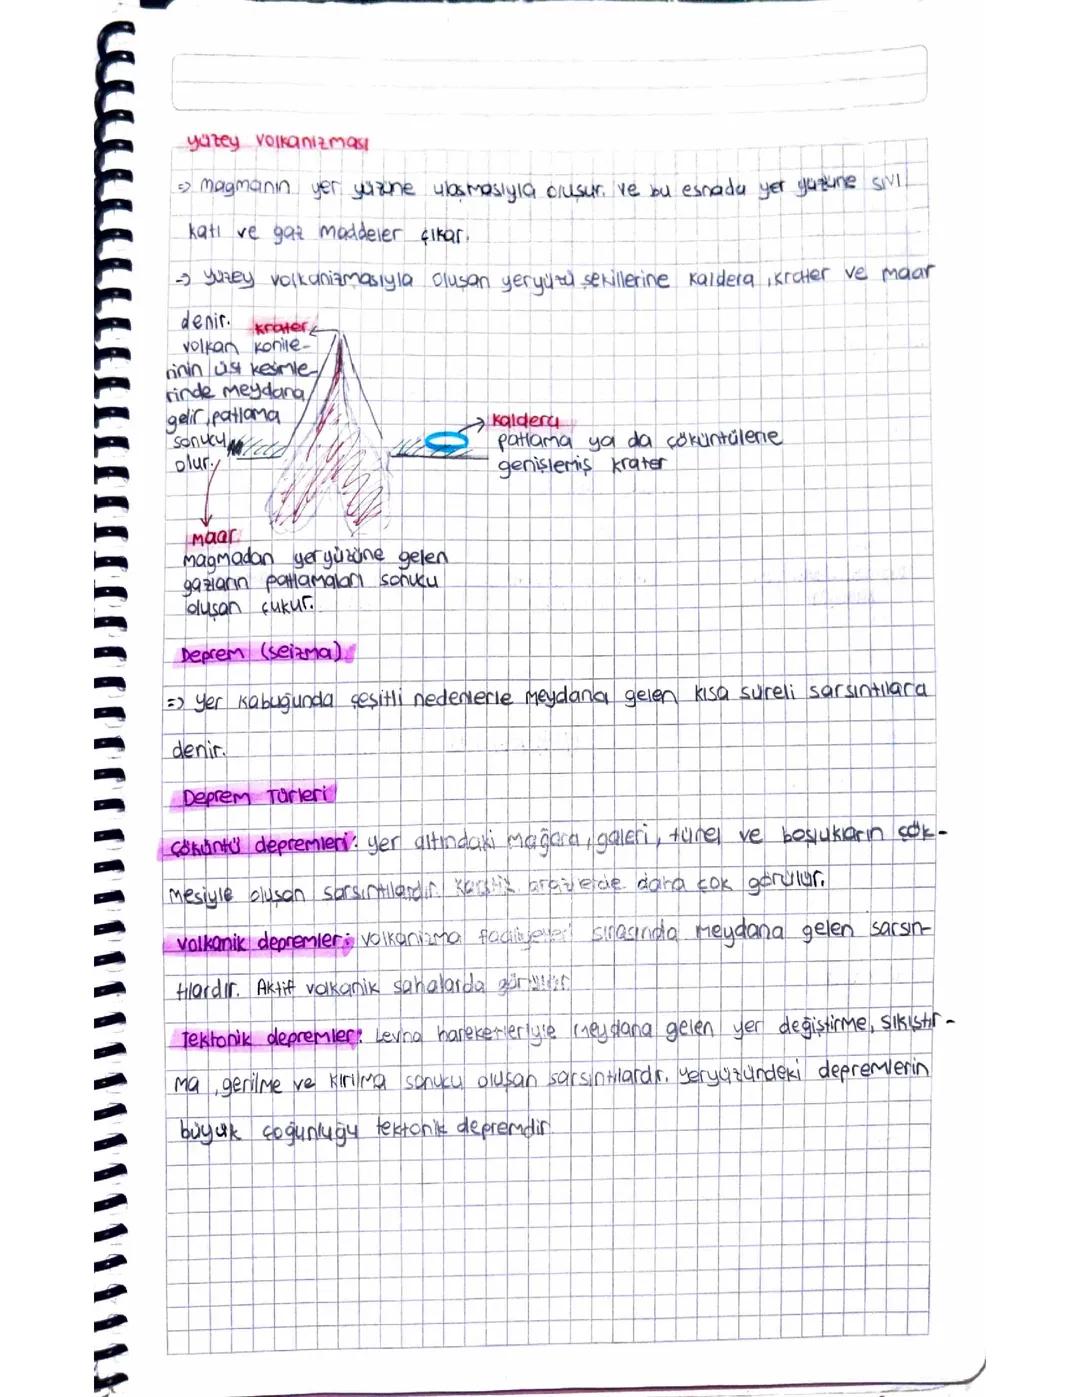 yüzey volkanizması
=> magmanın yer yüzüne ulaşmasıyla oluşur. ve bu esnada yer yüzüne sıvı
katı ve gaz maddeler çıkar.
-> yüzey volkanizmasıyla oluşan yeryüzü şekillerine kaldera, krater ve maar
denir.
krater
volkan konile-
rinin üst kesimle-
rinde meydana
gelir, patlama
sonucu
olur.
kaldera
patlama ya da çöküntülerle
genişlemiş krater
maar
magmadan yeryüzüne gelen
gazların patlamaları sonucu
oluşan çukur.
Deprem (seizma)
=> yer kabuğunda çeşitli nedenlerle meydana gelen kısa süreli sarsıntılara
denir.
Deprem Türleri
çöküntü depremleri: yer altındaki mağara, galeri, tünel ve boşlukların çök-
mesiyle oluşan sarsıntılardır. Karstik arazilerde daha çok görülür.
volkanik depremler: volkanizma faaliyetleri sırasında meydana gelen sarsın-
tılardır. Aktif volkanik sahalarda görülür.
Tektonik depremler: Levha hareketleriyle meydana gelen yer değiştirme, sıkıştır-
ma, gerilme ve kırılma sonucu oluşan sarsıntılardır. yeryüzündeki depremlerin
büyük çoğunluğu tektonik depremdir